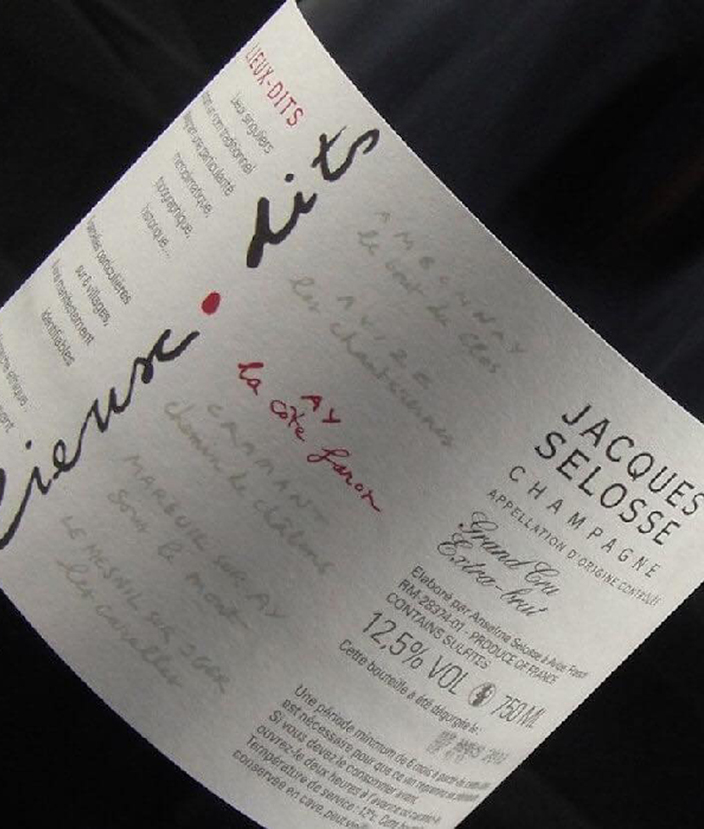 LIEUX-DITS
lieux singuliers
topographique,
historique,...
sur 6 villages,
identifiables
lieux.dits
AMBONNAY
le bout du clos
AVIZE
les chantereines
AY
la côte faron
CRAMANT
chemin de châlons
MAREUIL SUR AY
sous le mont
LE MESNIL SUR OGER
les carelles
JACQUES
SELOSSE
CHAMPAGNE
APPELLATION D'ORIGINE CONTRÔLÉE
Grand Cru
Extra-brut
Elaboré par Anselme Selosse à Avize France
RM-28374-01 - PRODUCE OF FRANCE
CONTAINS SULFITES
12,5% VOL 750 ML
Cette bouteille a été dégorgée le:
Une période minimum de 6 mois à partir de cette
est nécessaire pour que ce vin
Si vous devez le consommer avant,
ouvrez-le deux heures à l'avance
Température de service : 12°c.
conservée en cave,